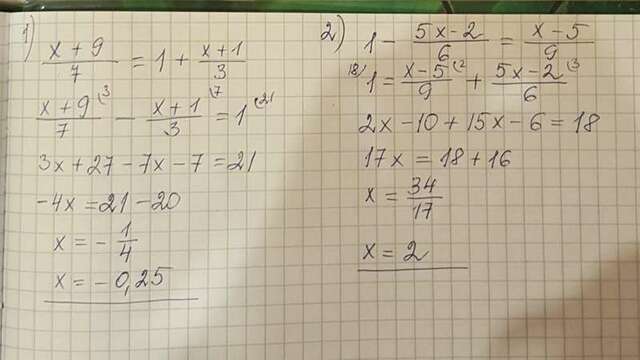 1) (x+9)/7 = 1 + (x+1)/3
(x+9)/7 (3 - (x+1)/3 (7 = 1 (21
3x+27-7x-7=21
-4x=21-20
x = - 1/4
x = -0,25
2) 1 - (5x-2)/6 = (x-5)/9
18) 1 = (x-5)/9 (2 + (5x-2)/6 (3
2x-10+15x-6=18
17x = 18+16
x = 34/17
x = 2